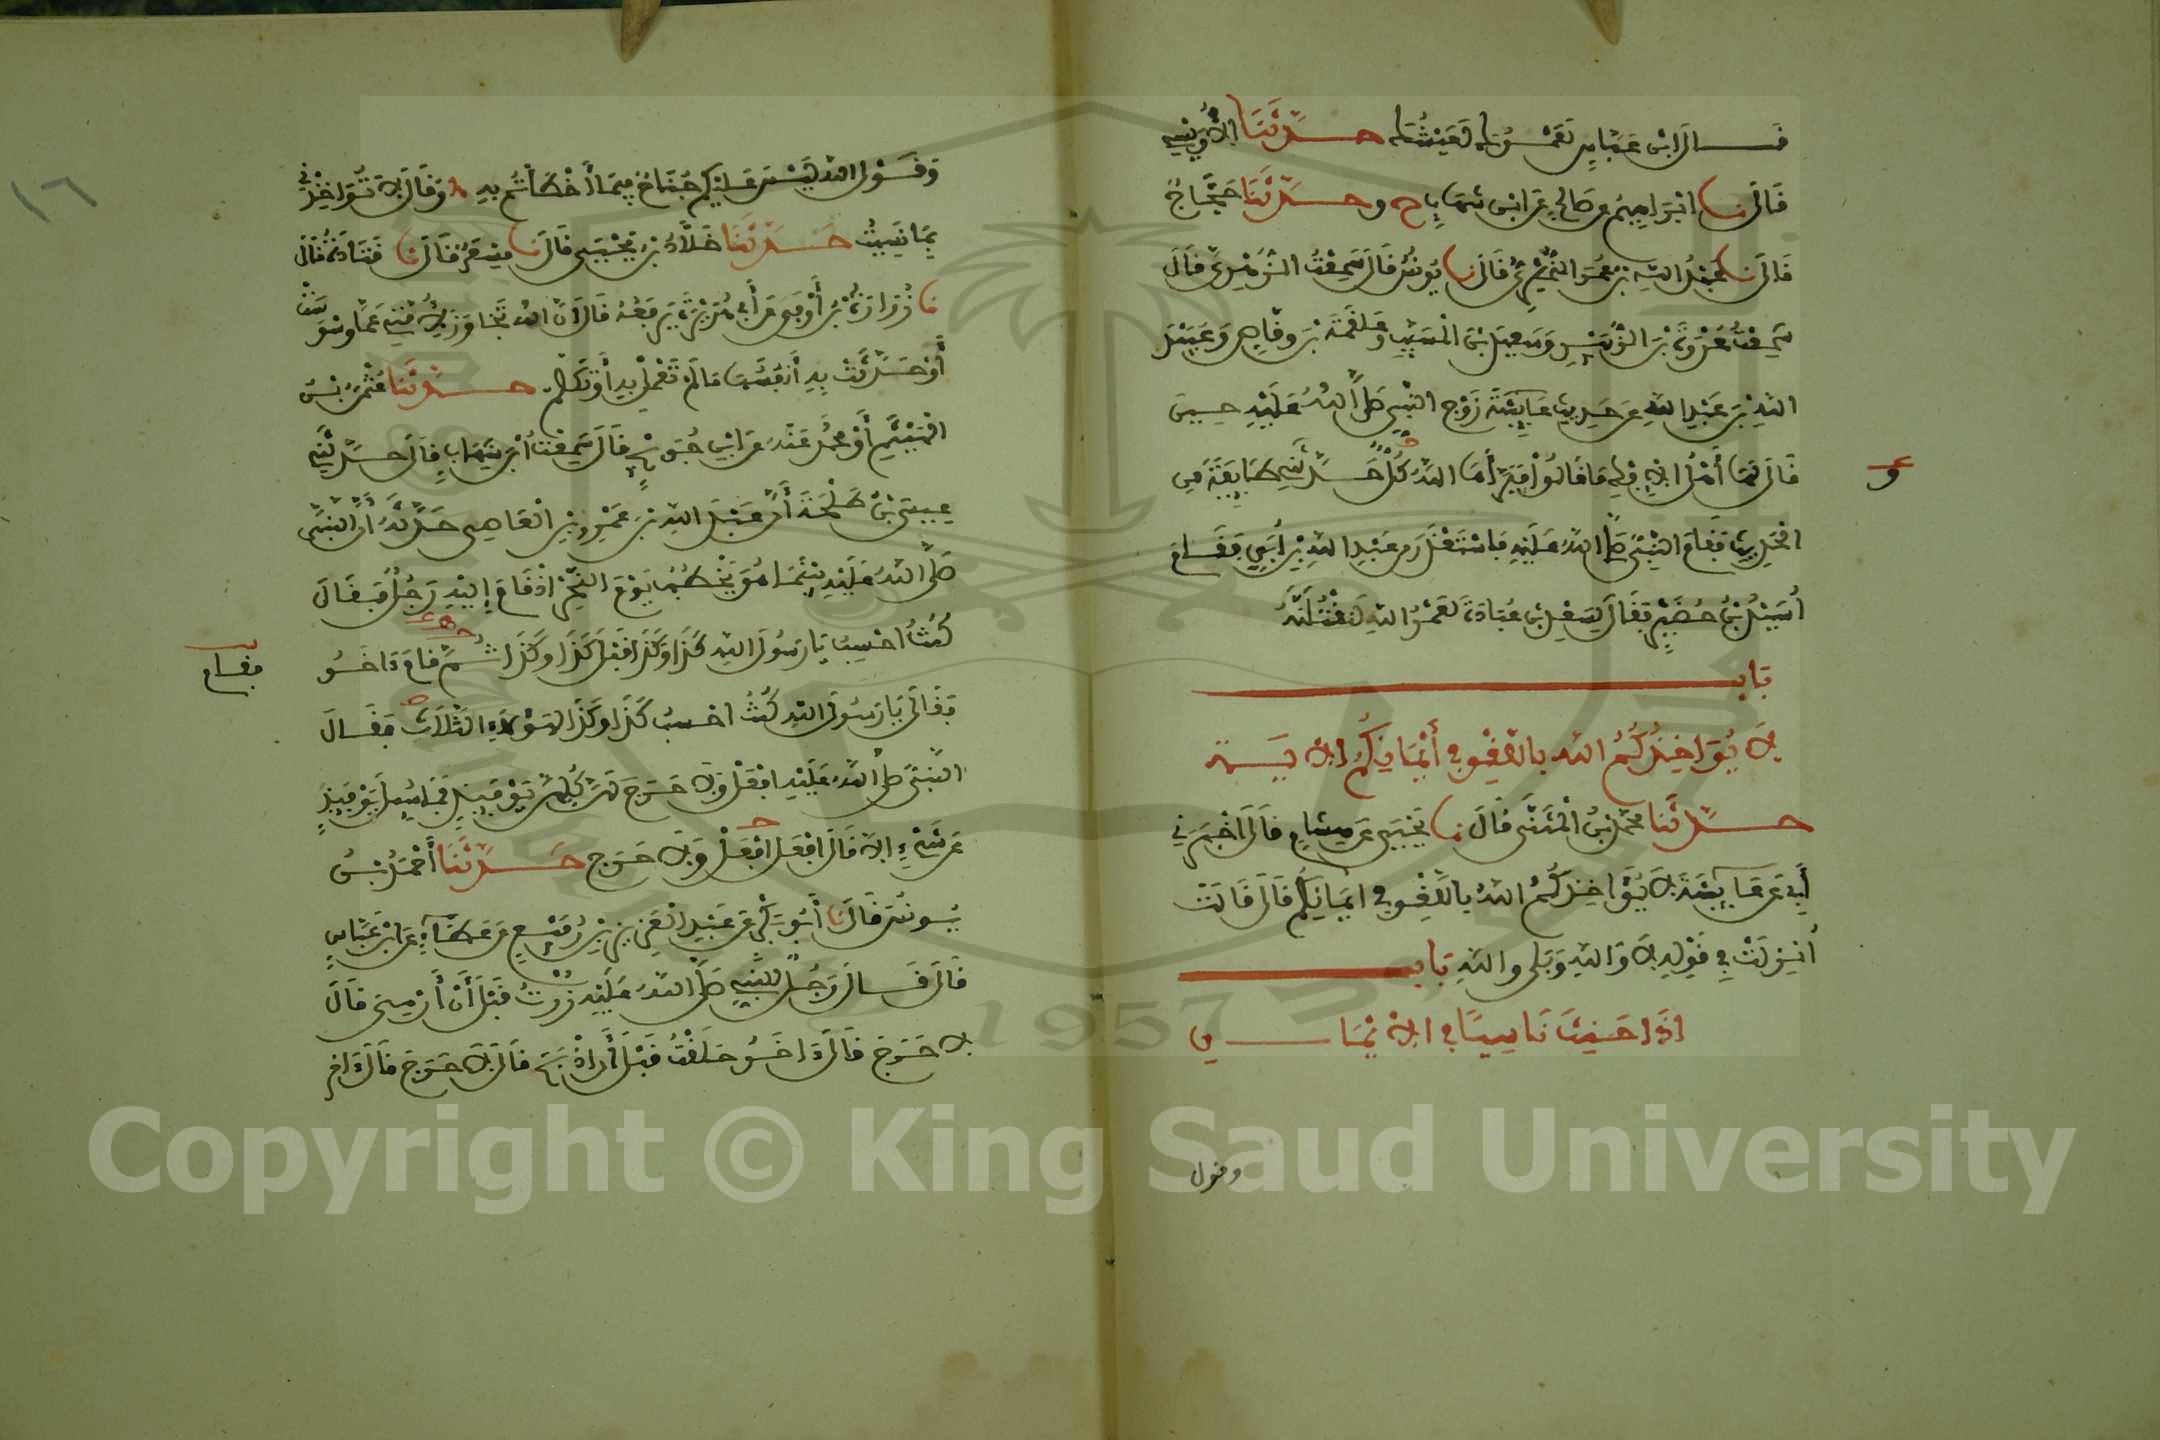 قَالَ ابْنُ عَبَّاسٍ لَعَمْرُكَ لَعَيْشُكَ حَدَّثَنَا الْأُوَيْسِي
قَالَ نا إبْرَاهِيمُ عن صَالِحٍ عَنِ ابْنِ شِهَابٍ ح وحَدَّثَنَا حَجَّاجٌ
قَالَ نا عَبْدُ اللهِ بْنُ عُمَرَ النُّمَيْرِيُّ قَالَ نا يُونُسُ قَالَ سَمِعْتُ الزُّهْرِيَّ قَالَ
سَمِعْتُ عُرْوَةَ بْنَ الزُّبَيْرِ وَسَعِيدَ بْنَ الْمُسَيِّبِ وعَلْقَمَةَ بْنَ وقَّاصٍ وَعُبَيْدَ
اللهِ بْنَ عَبْدِ اللهِ عن حَدِيثِ عَائِشَةَ زَوْجِ النَّبِيِّ صَلَّى اللهُ عَلَيْهِ حِينَ
قَالَ لَهَا أَهْلُ الْإِفْكِ مَا قَالُوا فَبَرَّأَهَا اللهُ كُلٌّ حَدَّثَنِي طَائِفَةً مِنَ
و
الْحَدِيثِ فَقَامَ النَّبِيُّ صَلَّى اللهُ عَلَيْهِ فَاسْتَعْذَرَ مِنْ عَبْدِ اللهِ بْنِ أُبَيٍّ فَقَامَ
أُسَيْدُ بْنُ حُضَيْرٍ فَقَالَ لِسَعْدِ بْنِ عُبَادَةَ لَعَمْرُ اللهِ لَنَقْتُلَنَّهُ
بَاب
لَا يُوَاخِذُكُمُ اللهُ بِاللَّغْوِ فِي أَيْمَانِكُمُ الْآيَةَ
حَدَّثَنَا محمَّدُ بْنُ الْمُثَنَّى قَالَ نا يَحْيَى عَنْ هِشَامٍ قَالَ أَخْبَرَنِي
أَبِي عَنْ عَائِشَةَ لَا يُؤَاخِذُكُمُ اللهُ بِاللَّغْوِ فِي أَيْمَانِكُمْ قَالَ قَالَتْ
أُنْزِلَتْ فِي قَوْلِهِ لَا وَاللهِ وَبَلَى واللهِ بَاب
إذَا حَنِثَ نَاسِيًا فِي الْأَيْمَانِ
وقول
١٦
وَقَوْلِ اللهِ لَيْسَ عَلَيْكُمْ جُنَاحٌ فِيمَا أَخْطَأْتُمْ بِهِ وَقَالَ لَا تُوَاخِذْنِي
بِمَا نَسِيتُ حَدَّثَنَا خَلَّادُ بْنُ يَحْيَى قَالَ نا مِسْعَرٌ قَالَ نا قَتَادَةُ قَالَ
نا زُرَارَةُ بْنُ أَوْفَى عَنْ أَبِي هُرَيْرَةَ يَرْفَعُهُ قَالَ إنَّ اللهَ تَجَاوَزَ لِأُمَّتِي عَمَّا وَسْوَسَتْ
أَوْ حَدَّثَتْ بِهِ أَنْفُسَهَا مَا لَمْ تَعْمَلْ بِهِ أَوْ تَكَلَّمْ حَدَّثَنَا عُثْمَنُ بْنُ
الْهَيْثَمِ أَوْ محَمَّدٌ عَنْهُ عَنِ ابْنِ جُرَيْجٍ قَالَ سَمِعْتُ ابْنَ شِهَابٍ قَالَ حَدَّثَنِي
عِيسَى بْنُ طَلْحَةَ أَنَّ عَبْدَ اللهِ بْنَ عَمْرِو بْنِ الْعَاصِي حَدَّثَهُ أَنَّ النَّبِيَّ
صَلَّى اللهُ عَلَيْهِ بَيْنَمَا هُوَ يَخْطُبُ يَوْمَ النَّحْرِ إِذْ قَامَ إِلَيْهِ رَجُلٌ فَقَالَ
كُنْتُ أَحْسِبُ يَا رَسُولَ اللهِ كَذَا وَكَذَا قَبْلَ كَذَا وكَذَا ثُمَّ قَامَ ءَاخَرُ
فقام
فَقَالَ يَا رَسُولَ اللهِ كُنْتُ أَحْسِبُ كَذَا وَكَذَا لِهَؤُلَاءِ الثَّلَاثِ فَقَالَ
النَّبِيُّ صَلَّى اللهُ عَلَيْهِ افْعَلْ وَلَا حَرَجَ لَهُنَّ كُلِّهِنَّ يَوْمَئِذٍ فَمَا سُئِلَ يَوْمَئِذٍ
عَنْ شَيْءٍ إلَّا قَالَ افْعَلْ افْعَلْ وَلَا حَرَجَ حَدَّثَنَا أَحْمَدُ بْنُ
يُونُسَ قَالَ نا أَبُو بَكْرٍ عَنْ عَبْدِ الْعَزِيزِ بْنِ رُفَيْعٍ عَنْ عَطَاءٍ عَنِ ابْنِ عَبَّاسٍ
قَالَ قَالَ رَجُلٌ لِلنَّبِيِّ صَلَّى اللهُ عَلَيْهِ زُرْتُ قَبْلَ أَنْ أَرْمِيَ قَالَ
لَا حَرَجَ قَالَ ءَاخَرُ حَلَقْتُ قَبْلَ أَنْ أَذْبَحَ قَالَ لَا حَرَجَ قَالَ ءَاخَرُ
Copyright © King Saud University
1957